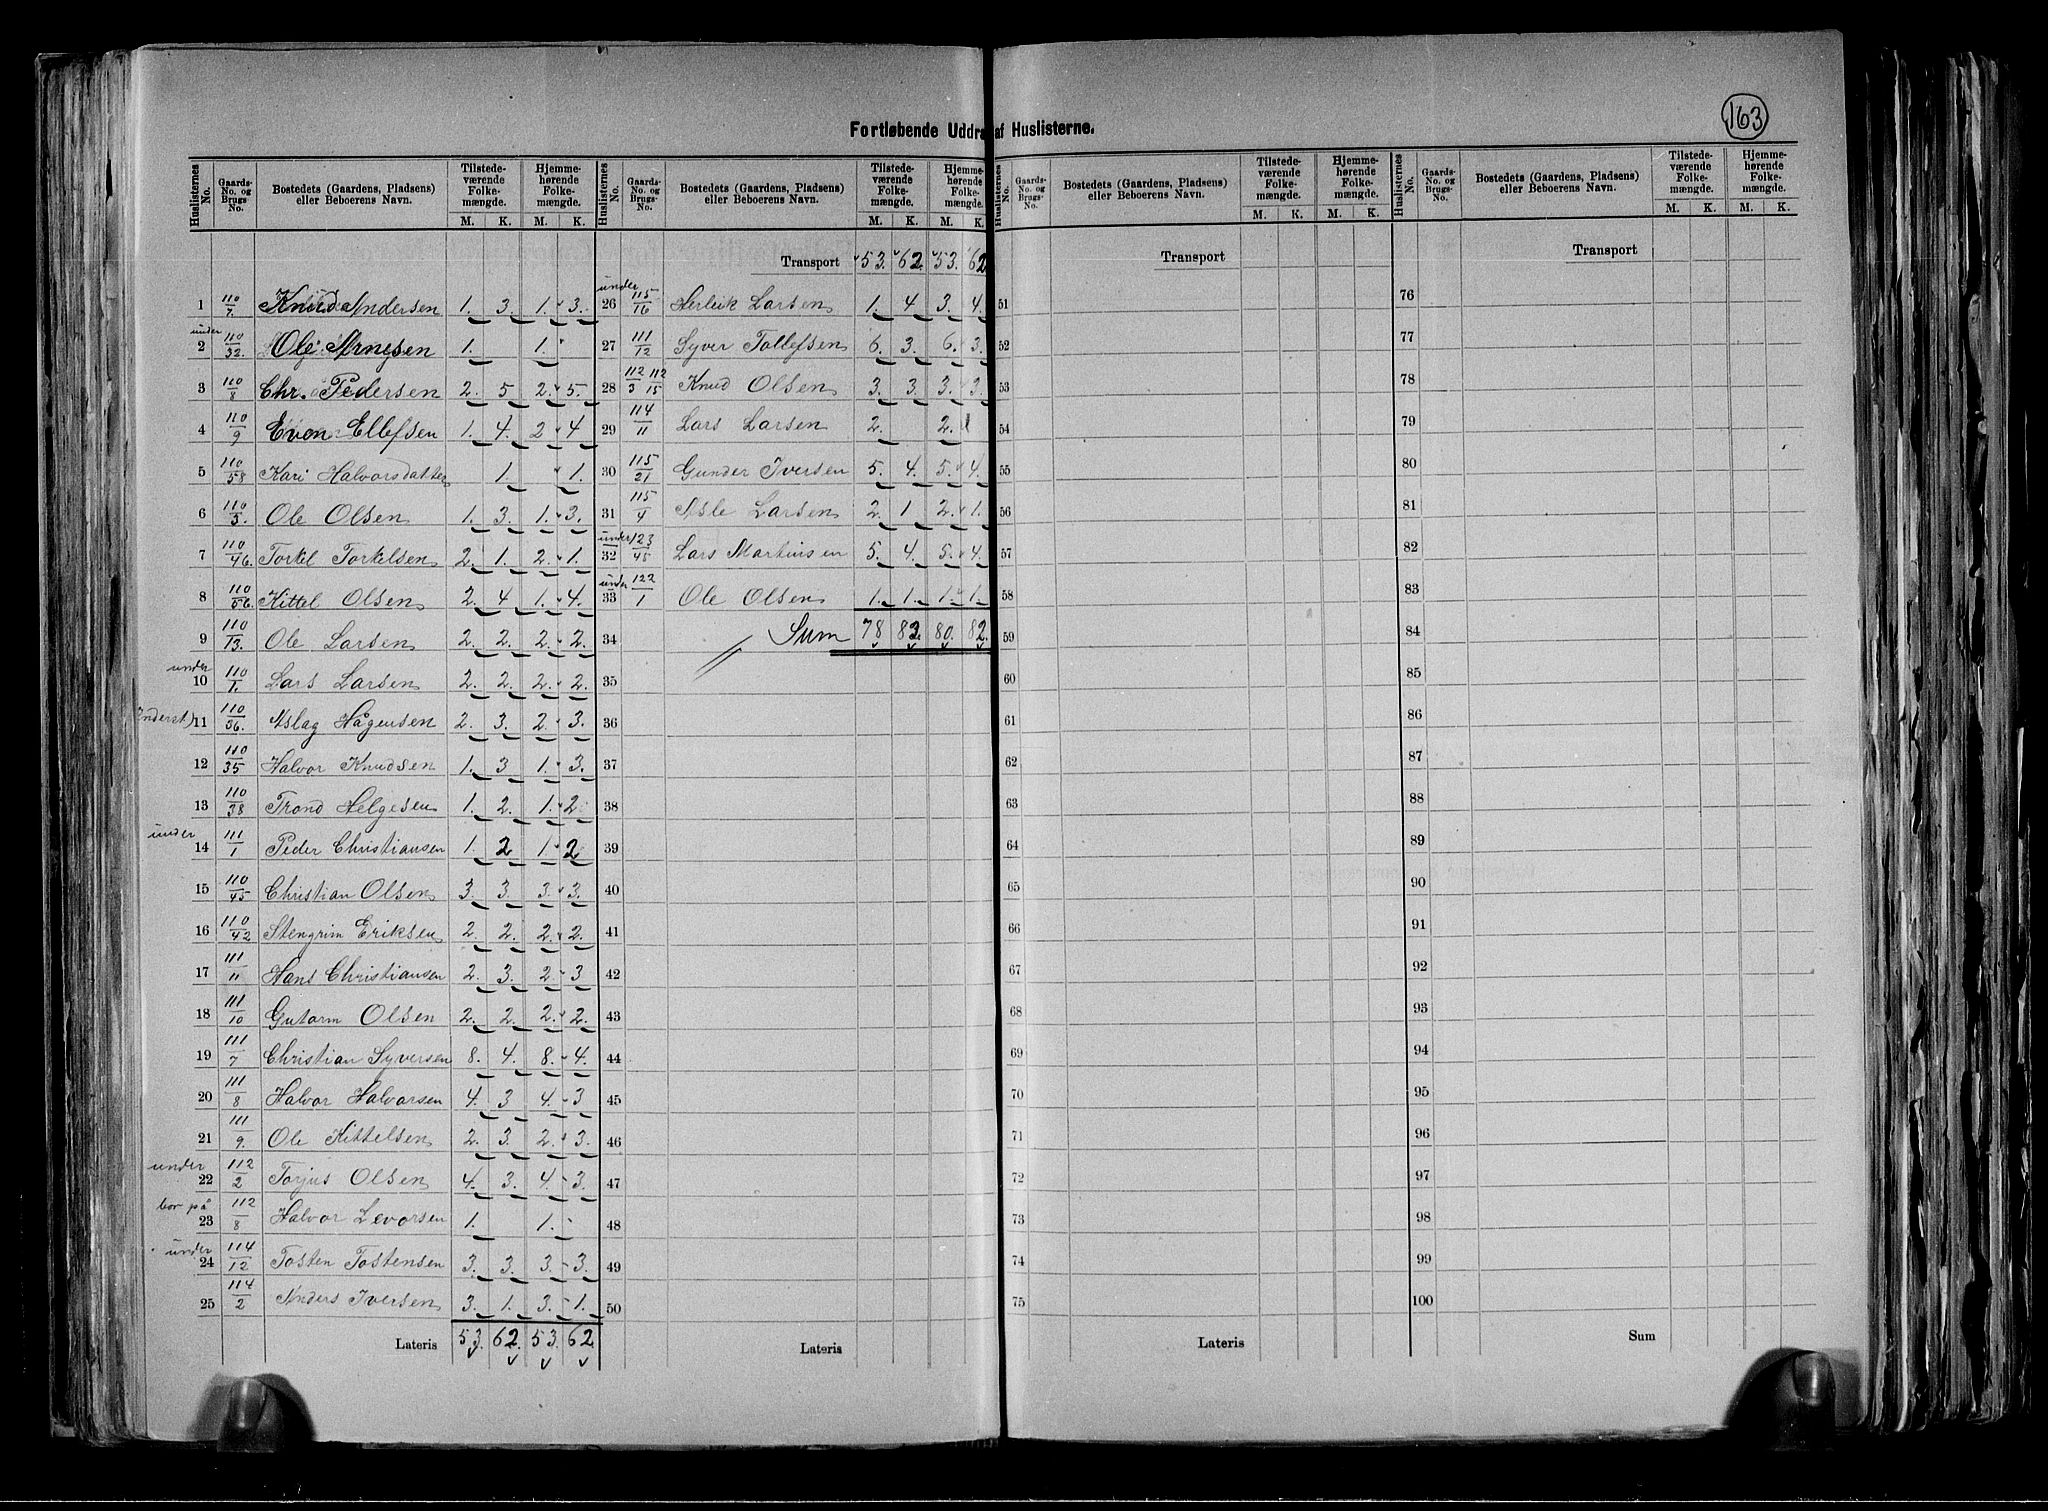 163
Fortløbende Uddra af Huslisterne.
Huslisternes No. | Gaards-No. og Brugs-No. | Bostedets (Gaardens, Pladsens) eller Beboerens Navn. | Tilstedeværende Folkemængde. M. K. | Hjemmehørende Folkemængde. M. K.
1 110/7. Knud Andersen 1. 3. 1. 3.
under 2 110/32. Ole Arnesen 1. 1.
3 110/8 Chr. Pedersen 2. 5 2. 5.
4 110/9 Even Ellefsen 1. 4. 2 4
5 110/58 Kari Halvorsdatter 1. 1.
6 110/5. Ole Olsen 1. 3. 1. 3.
7 110/46. Torkel Torkelsen 2. 1. 2. 1.
8 110/56. Kittel Olsen 2. 4 1. 4.
9 110/13. Ole Larsen 2. 2. 2. 2.
under 10 110/1. Lars Larsen 2. 2. 2. 2.
Inderst) 11 110/56. Aslag Hågensen 2. 3. 2. 3.
12 110/35 Halvor Knudsen 1. 3 1. 3.
13 110/38 Trond Helgesen 1. 2. 1. 2.
under 14 111/1 Peder Christiansen 1. 2 1. 2
15 110/45 Christian Olsen 3. 3. 3. 3.
16 110/42 Stengrim Eriksen 2. 2. 2. 2.
17 111/11 Hans Christiansen 2. 3. 2. 3
18 111/10 Gutorm Olsen 2. 2. 2. 2.
19 111/7 Christian Syversen 8. 4. 8. 4.
20 111/8 Halvor Halvorsen 4. 3 4. 3
21 111/9. Ole Kittelsen 2. 3. 2. 3.
under 22 112/2 Torjus Olsen 4. 3. 4. 3.
bor på 23 112/8 Halvor Levorsen 1. 1.
under 24 114/12 Tosten Tostensen 3. 3. 3. 3.
25 114/2 Anders Iversen 3. 1. 3. 1.
Lateris 53. 62. 53. 62.
Huslisternes No. | Gaards-No. og Brugs-No. | Bostedets (Gaardens, Pladsens) eller Beboerens Navn. | Tilstedeværende Folkemængde. M. K. | Hjemmehørende Folkemængde. M. K.
Transport 53. 62. 53. 62
under 26 115/16 Herleik Larsen 1. 4 3. 4.
27 111/12 Syver Tollefsen 6. 3. 6. 3.
28 112/3 112/15 Knud Olsen 3. 3. 3. 3.
29 114/11 Lars Larsen 2. 2.
30 115/21 Gunder Iversen 5. 4. 5. 4.
31 115/4 Asle Larsen 2. 1 2. 1.
under 32 123/45 Lars Martinsen 5. 4. 5. 4.
under 33 122/1 Ole Olsen 1. 1. 1. 1.
34 Sum 78 82. 80. 82.
35
36
37
38
39
40
41
42
43
44
45
46
47
48
49
50
Lateris
Gaards-No. og Brugs-No. | Bostedets (Gaardens, Pladsens) eller Beboerens Navn. | Tilstedeværende Folkemængde. M. K. | Hjemmehørende Folkemængde. M. K.
Transport
51
52
53
54
55
56
57
58
59
60
61
62
63
64
65
66
67
68
69
70
71
72
73
74
75
Lateris
Huslisternes No. | Gaards-No. og Brugs-No. | Bostedets (Gaardens, Pladsens) eller Beboerens Navn. | Tilstedeværende Folkemængde. M. K. | Hjemmehørende Folkemængde. M. K.
Transport
76
77
78
79
80
81
82
83
84
85
86
87
88
89
90
91
92
93
94
95
96
97
98
99
100
Sum